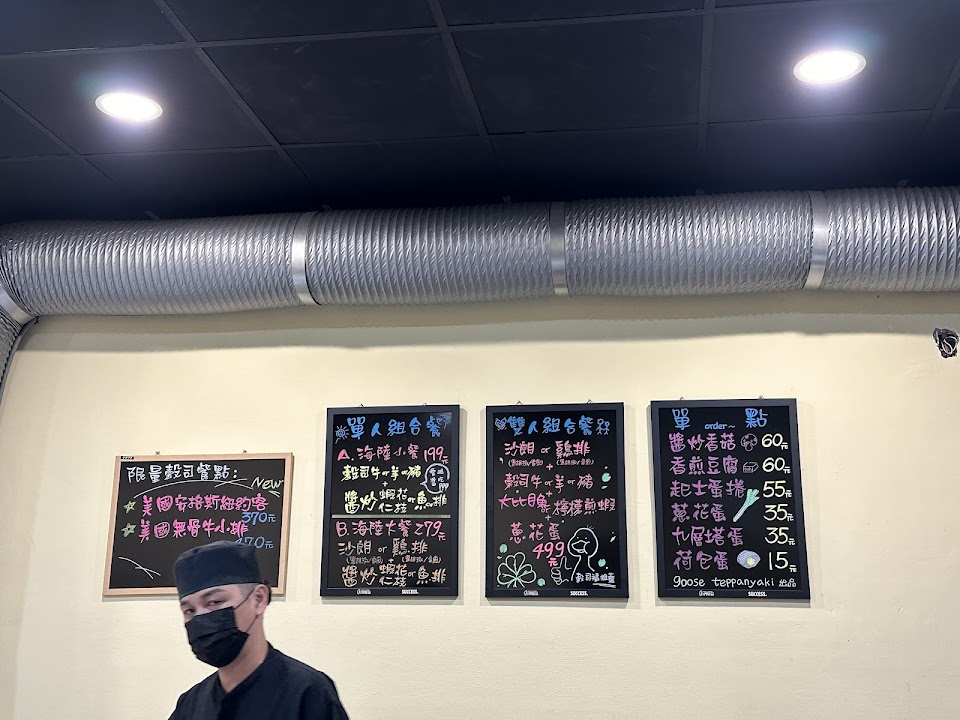 限量穀司餐點:
New
美國安格斯紐約客
370元
美國無骨牛小排
470元
單人組合餐
A. 海陸小餐 199元
穀司牛or羊or豬
+
醬炒蝦花or魚排
B. 海陸大餐 279元
沙朗 or 雞排
+
醬炒蝦花or魚排
雙人組合餐
沙朗 or 雞排
+
穀司牛or羊or豬
+
大比目魚 or 檸檬煎蝦
蔥花蛋
499元
單點
order~
醬炒香菇 60元
香煎豆腐 60元
起士蛋捲 55元
蔥花蛋 35元
九層塔蛋 35元
荷包蛋 15元
goose teppanyaki 出品
SUCCESS.
SUCCESS.
SUCCESS.